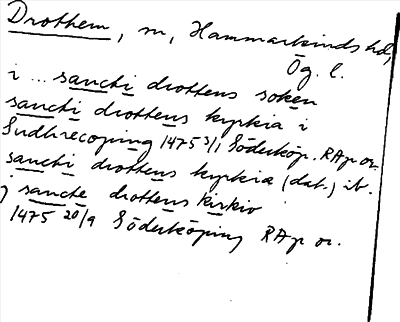 Drothem, sn, Hammarkinds hd,
Ög. l.
i ... sancti drottens soken
sancti drottens kyrkia i
Sudhrecoping 1475 3/1 Söderköp. RAp or.
sancti drottens kyrkia (dat.) ib.
j sancte drottens kirkio
1475 20/9 Söderköping RAp or.